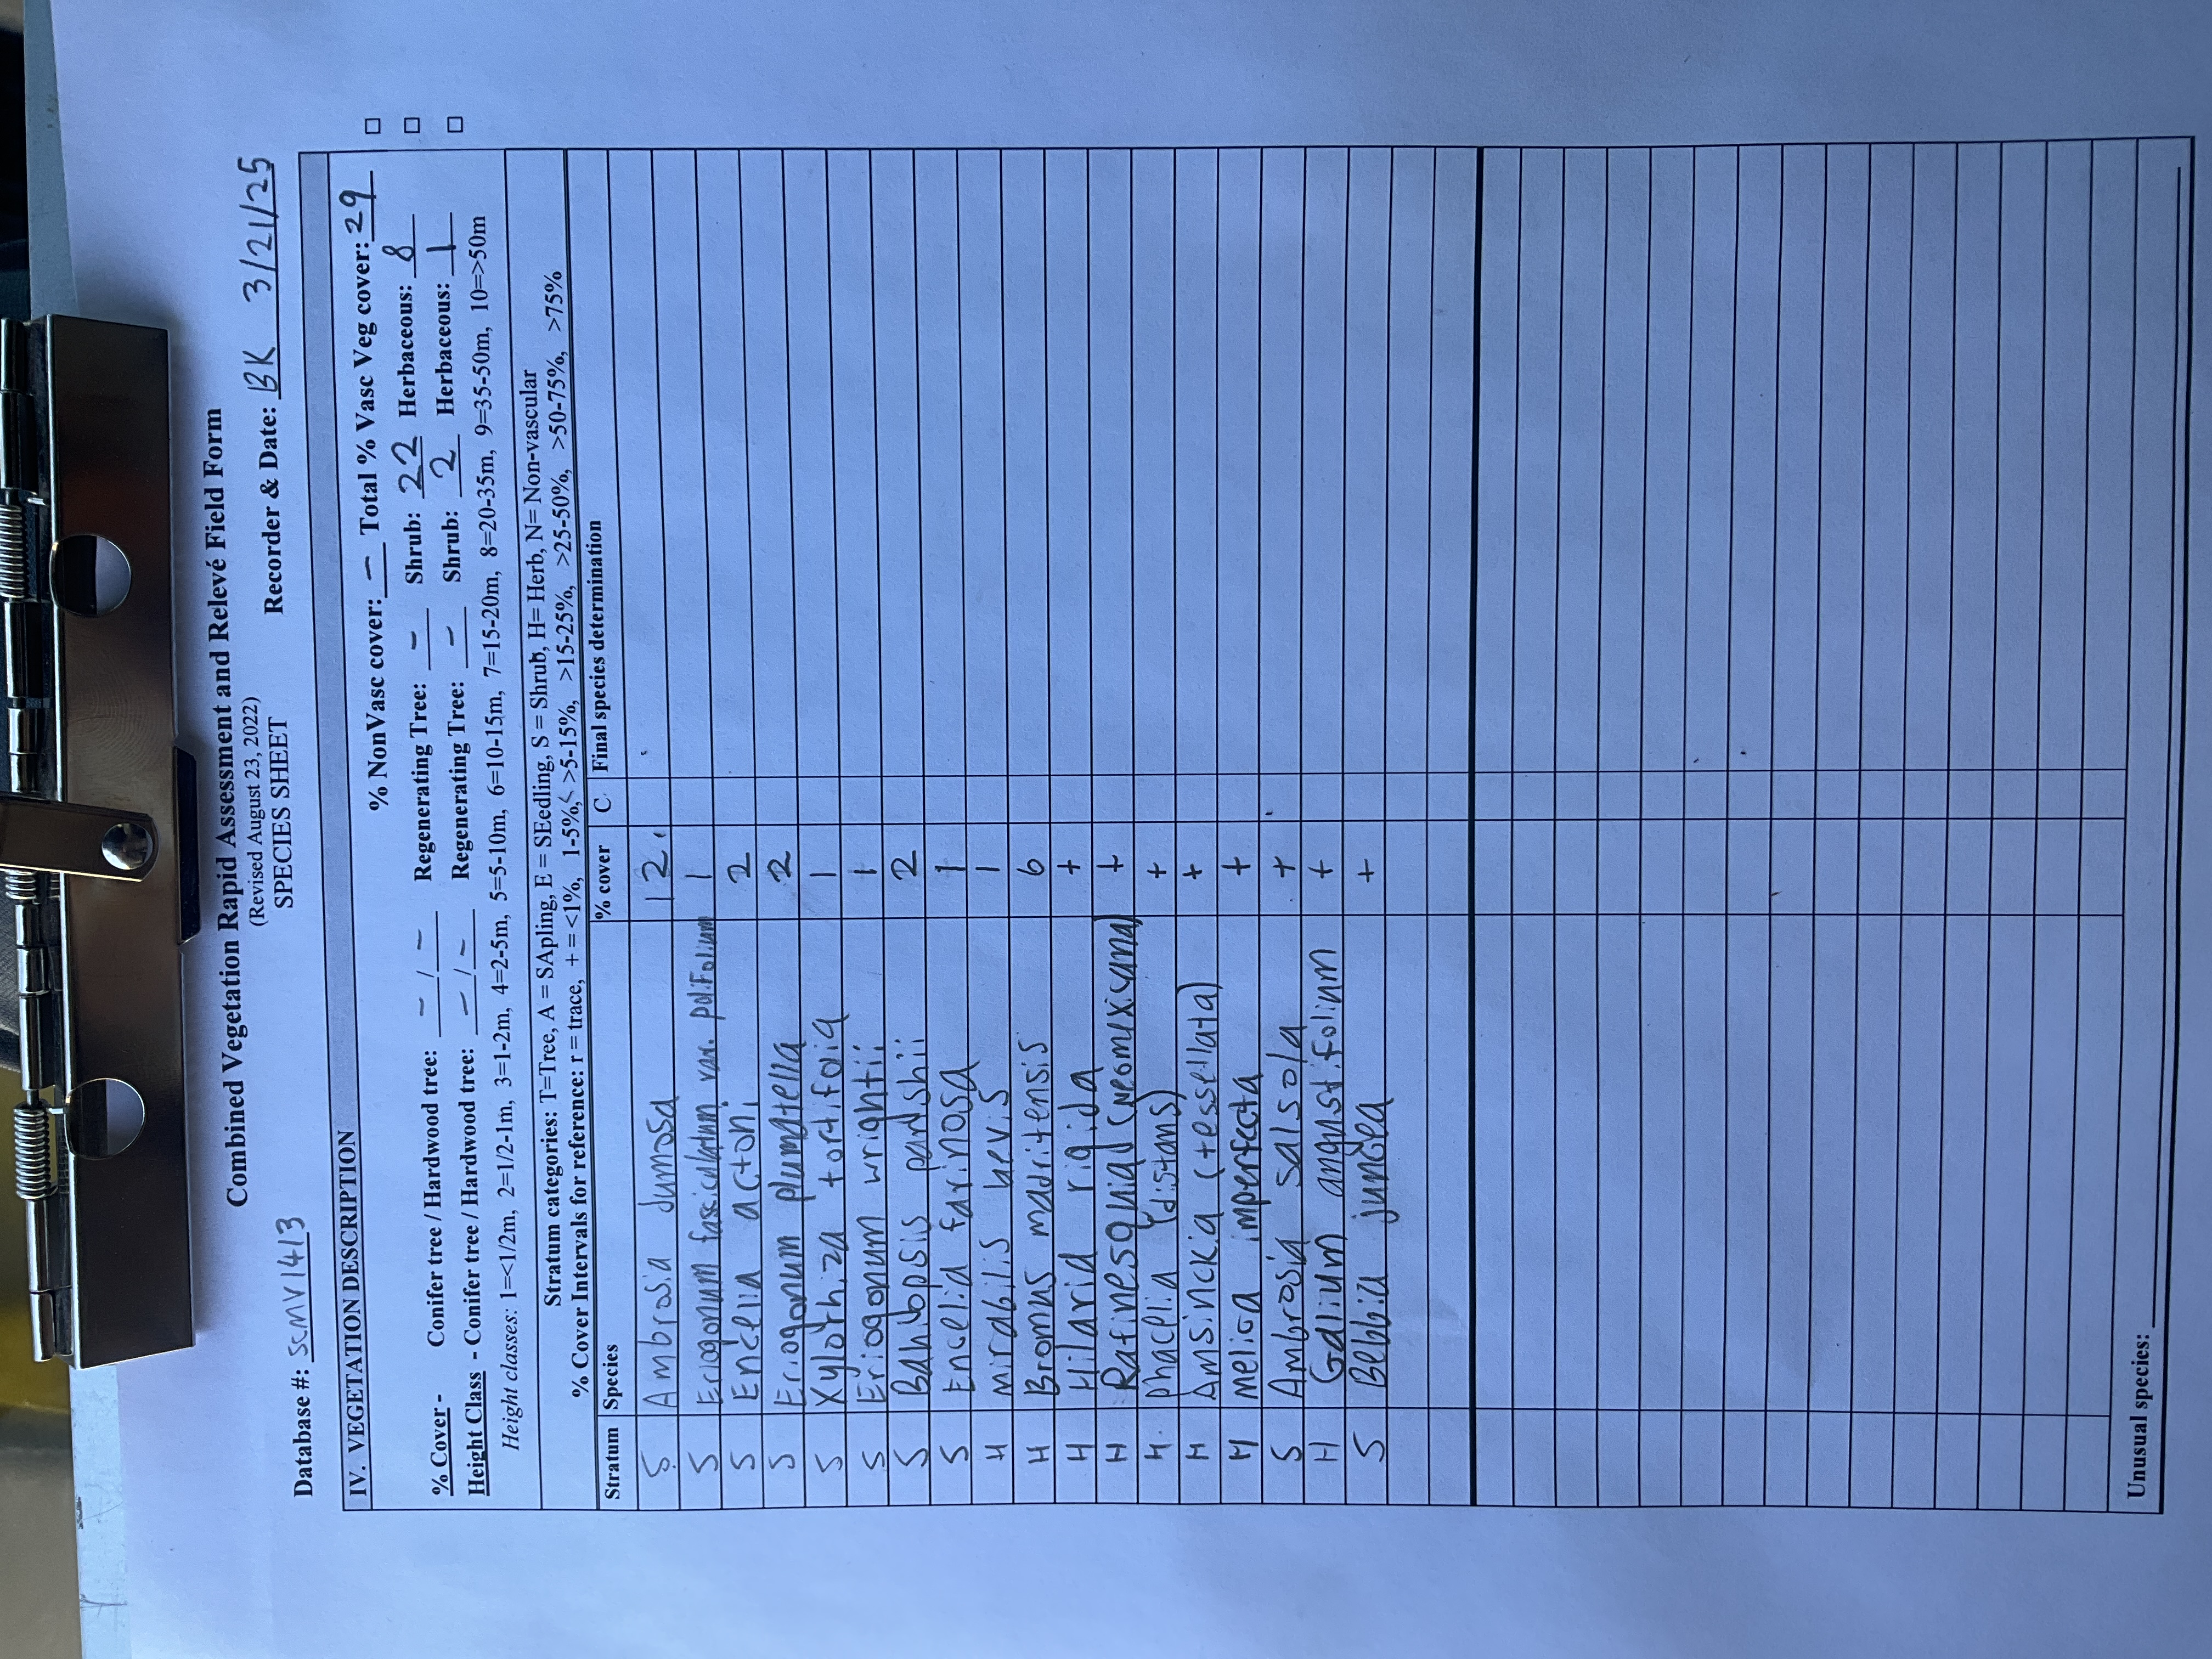 Combined Vegetation Rapid Assessment and Relevé Field Form
(Revised August 23, 2022)
SPECIES SHEET
Database #: SCMV1413 Recorder & Date: BK 3/21/25
IV. VEGETATION DESCRIPTION
% NonVasc cover: – Total % Vasc Veg cover: 29
% Cover - Conifer tree / Hardwood tree: – / – Regenerating Tree: – Shrub: 22 Herbaceous: 8
Height Class - Conifer tree / Hardwood tree: – / – Regenerating Tree: – Shrub: 2 Herbaceous: 1
Height classes: 1=<1/2m, 2=1/2-1m, 3=1-2m, 4=2-5m, 5=5-10m, 6=10-15m, 7=15-20m, 8=20-35m, 9=35-50m, 10=>50m
Stratum categories: T=Tree, A = SApling, E = SEedling, S = Shrub, H= Herb, N= Non-vascular
% Cover Intervals for reference: r = trace, + = <1%, 1-5%, >5-15%, >15-25%, >25-50%, >50-75%, >75%
Stratum Species % cover C Final species determination
S Ambrosia dumosa 12
S Eriogonum fasciculatum var. polifolium 1
S Encelia actoni 2
S Eriogonum plumatella 2
S Xylorhiza tortifolia 1
S Eriogonum wrightii 1
S Bahiopsis parishii 2
S Encelia farinosa 1
H Mirabilis laevis 1
H Bromus madritensis 6
H Hilaria rigida +
H Rafinesquia (neomexicana) +
H Phacelia (distans) +
H Amsinckia (tessellata) +
H melica imperfecta +
S Ambrosia salsola +
H Galium angustifolium +
S Bebbia juncea +
Unusual species: